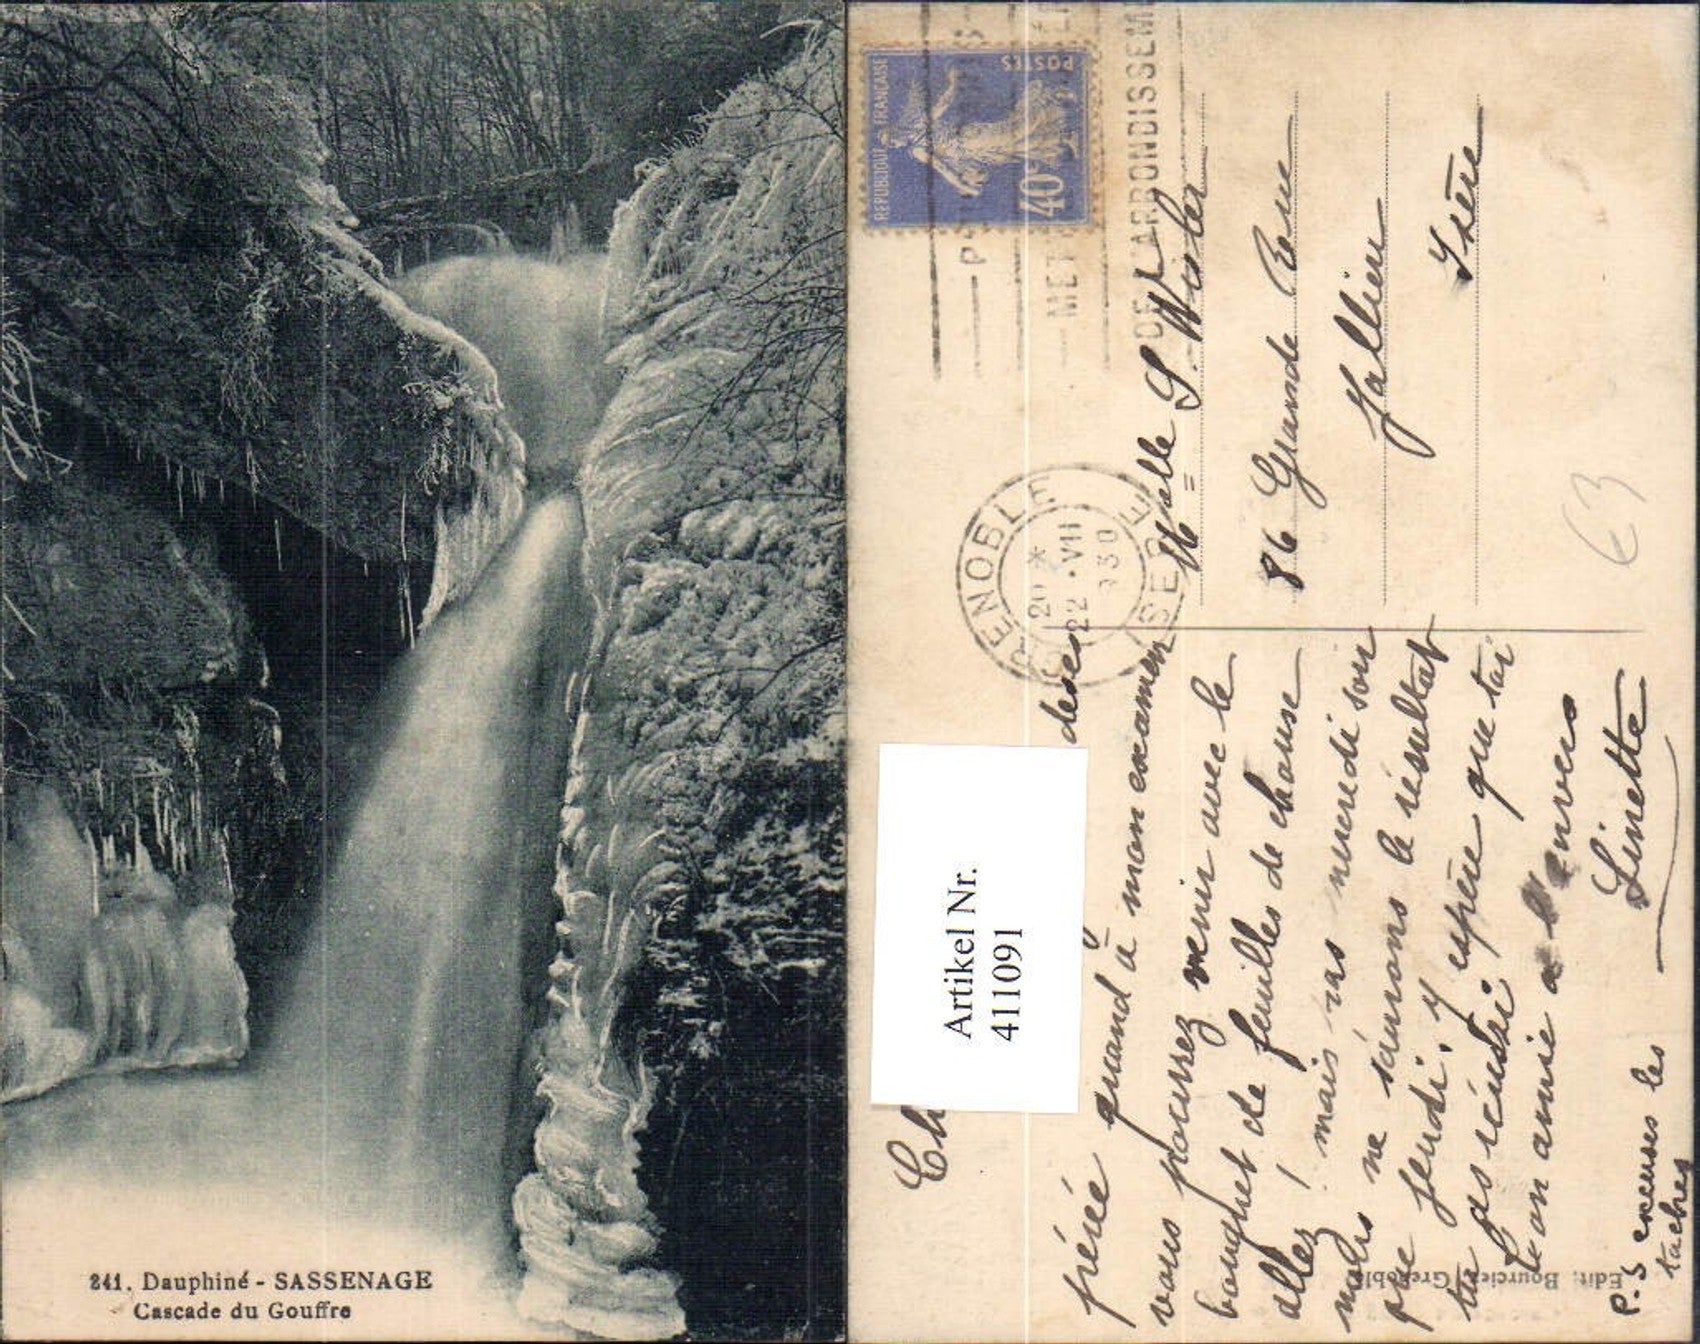 241. Dauphiné - SASSENAGE
Cascade du Gouffre
REPUBLIQUE FRANCAISE
POSTES
40c
METTE
DE L'ARRONDISSEM
GRENOBLE
22 · VII
1930
ISERE
Melle S. Wister
=
86 Grande Rue
Jallieu
Isère
€3
Artikel Nr.
411091
Ch
des
quand à mon examen
vous pourrez venir avec le
bouquet de feuilles de chouse
allez ! mais pas mercredi soir
nous ne saurons le résultat
que jeudi. Y espère que toi
tu as réussi.
Ton amie à l'envers
Linette
P.S excuses les
taches
Edit: Bourcier Grenoble